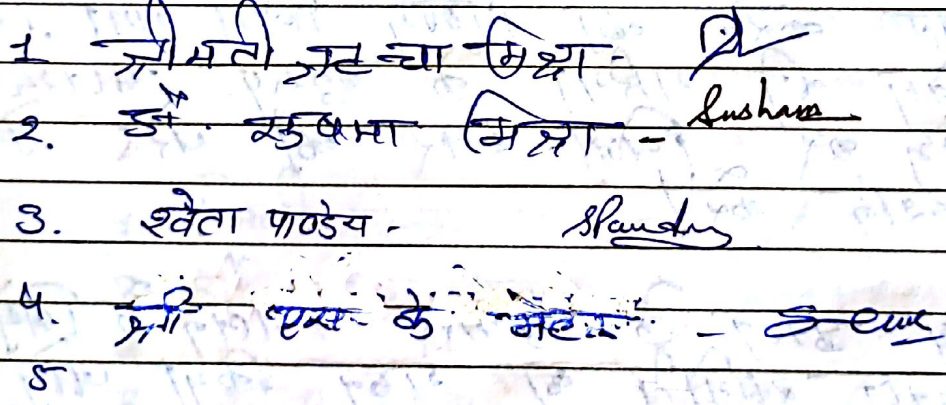 1 श्रीमती ऋचा मिश्रा -
2. डॉ. सुषमा मिश्रा - Susham
3. श्वेता पाण्डेय - SPandey
4. श्री एस के -
5